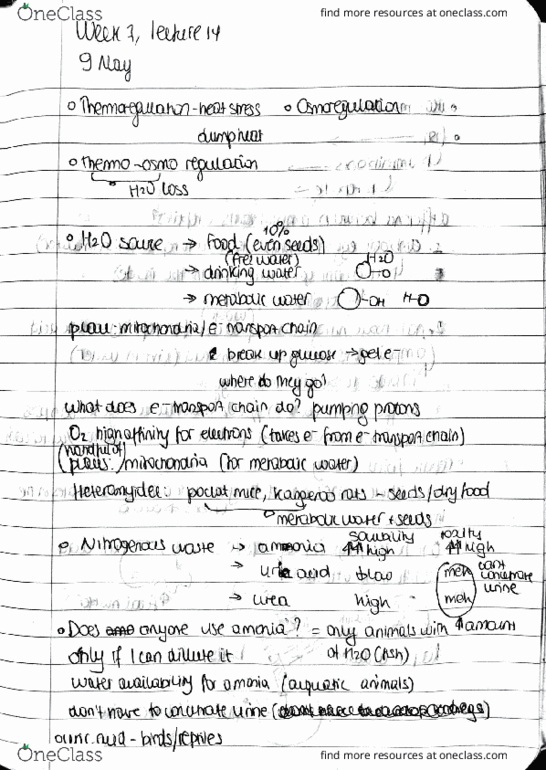 OneClass
find more resources at oneclass.com
Week 7, lecture 14
9 May
Thermoregulation - heat stress
Osmoregulation
dump heat
Thermo-osmo regulation
H2O loss
10%
H2O source → Food (even seeds)
(free water)
→ drinking water
H2O
→ metabolic water
OH
H-O
place: mitochondria/e- transport chain
break up glucose → get e-
where do they go?
What does e- transport chain do? pumping protons
O2 high affinity for electrons (takes e- from e- transport chain)
(handful of)
places: mitochondria (for metabolic water)
Heteromyidae: pocket mice, kangaroo rats - seeds/dry food
metabolic water + seeds
solubility
toxicity
Nitrogenous waste → ammonia high high
→ uric acid low meh
can't concentrate urine
→ urea high meh
Does anyone use amonia? = only animals with amount
only if I can dilute it of H2O (fish)
water availability for amonia (aquatic animals)
don't have to concentrate urine
uric acid - birds/reptiles
OneClass
find more resources at oneclass.com